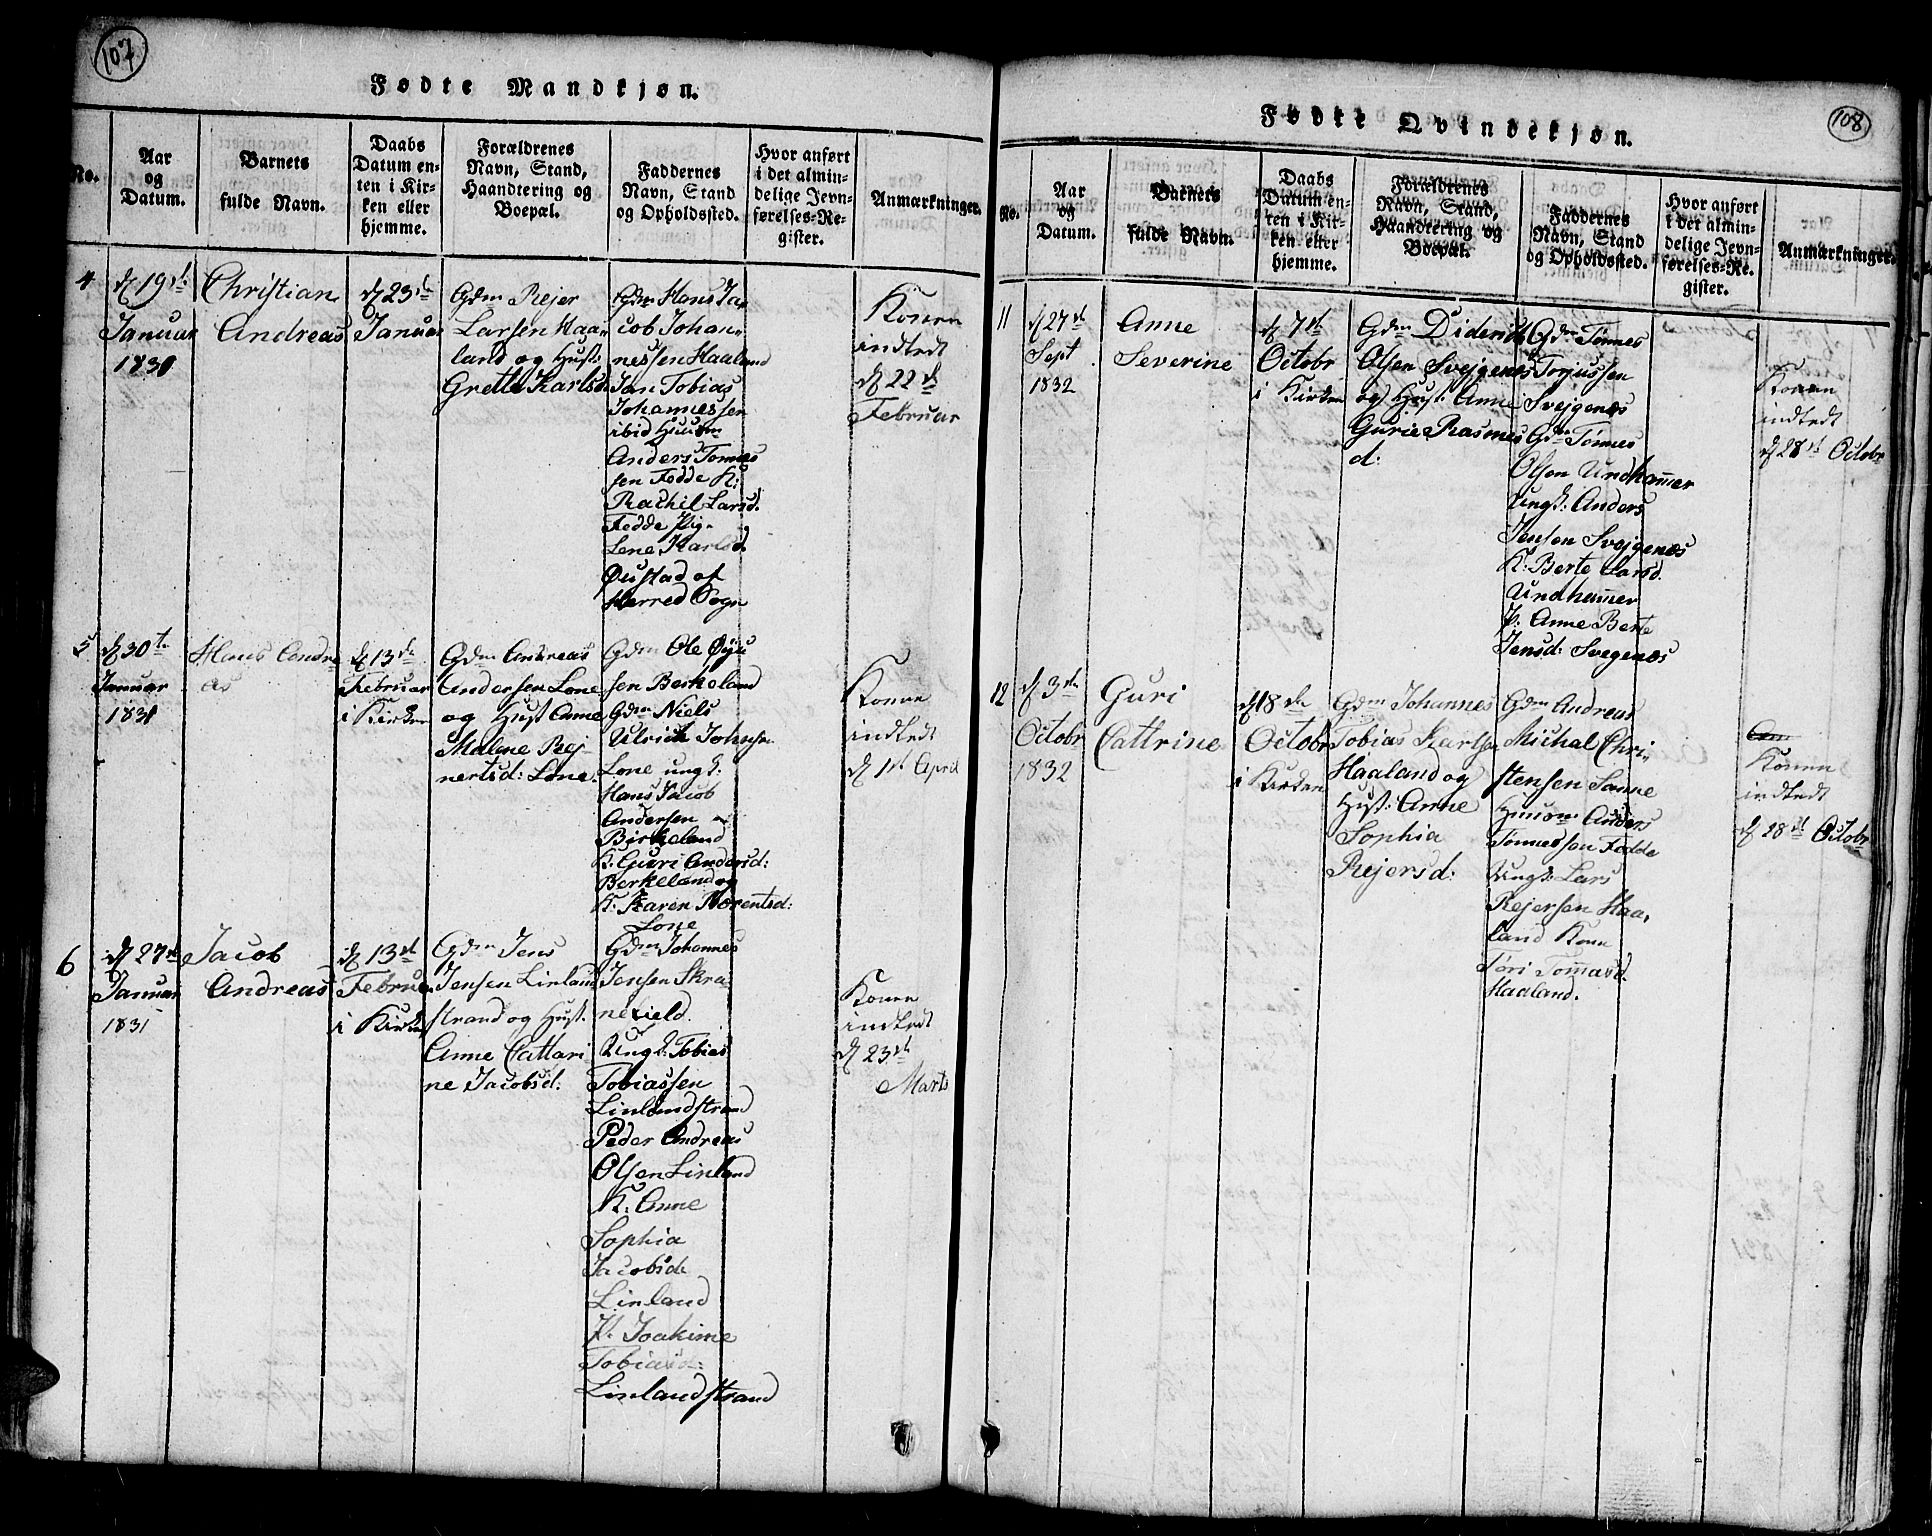 107
Fødte Mandkjøn.
No.
Aar
og
Datum.
Barnets
fulde Navn.
Daabs
Datum en-
ten i Kir-
ken eller
hjemme.
Forældrenes
Navn, Stand,
Haandtering og
Boepæl.
Faddernes
Navn, Stand
og Opholdssted.
Hvor anført
i det almin-
delige Jevn-
førelses-Re-
gister.
Anmærkninger.
4
d 19de
Januar
1831
Christian
Andreas
d 23de
Januar
Gdm Rejer
Larsen Haa-
land og Hust:
Grethe Karlsd
Gdm Hans Ja-
cob Johan-
nessen Haaland
Jan Tobias
Johannessen
ibid Huusm
Anders Tønnes
sen Fedde K:
Rachil Larsd.
Fedde Pig-
Lene Karlsd.
Øustad af
Herred Sogn
Konen
indledt
d 22de
Februar
5
d 30te
Januar
1831
Hans Andre
as
d 13de
Februar
i Kirken
Gdm Andreas
Andersen Lone
og Hust Anne
Malene Rej-
nertsd: Lone.
Gdm Ole Øju
sen Berkeland
Gdm Niels
Ulrich Johnsen
Lone ungk:
Hans Jacob
Andersen
Birkeland
K. Guuri Andersd:
Berkeland og
K. Karen Norentsd:
Lone
Konen
indledt
d 1st April
6
d 27de
Januar
1831
Jacob
Andreas
d 13de
Februar
i Kirken
Gdm Jens
Jensen Linland
strand og Hust.
Anne Cattari-
ne Jacobsd:
Gdm Johannes
Jensen Skra-
nefield.
Ungk: Tobias
Tobiassen
Linlandstrand
Peder Andreas
Olsen Linland
K. Anne
Sophia
Jacobsd
Linland
P. Joakime
Tobiasd:
Linlandstrand
Konen
indledt
d 23de
Marts
108
Fødte Qvindekjøn.
No.
Aar
og
Datum.
Barnets
fulde Navn.
Daabs
Datum en-
ten i Kir-
ken eller
hjemme.
Forældrenes
Navn, Stand,
Haandtering og
Boepæl.
Faddernes
Navn, Stand
og Opholdssted.
Hvor anført
i det almin-
delige Jevn-
førelses-Re-
gister.
Anmærkninger.
11
d 27de
Sept
1832
Anne
Severine
d 7de
Octobr
i Kirken
Gdm Diderik
Olsen Svejgenes
og Hust: Anne
Gurie Rasmus
d:
Gdm Tønnes
Torjussen
Svejgenæs
Gdm Tønnes
Olsen Undhammer
Ungk: Anders
Jensen Svejgenæs
K: Berte Larsd.
Undhammer
P: Anne Berte
Jensd: Svegenæs
Konen
indledt
d 28de Octobr
12
d 3de
Octobr
1832
Guri
Cattrine
d 18de
Octobr
i Kirken
Gdm Johannes
Tobias Karlsen
Haaland og
Hust: Anne
Sophia
Rejersd:
Gdm Andreas
Michal Chri-
stensen Sanne
Huusm Anders
Tønnessen Fedde
Ungk: Lars
Rejersen Haa-
land Kone
Siri Tomasd.
Haaland.
Konen
indledt
d 28de Octobr